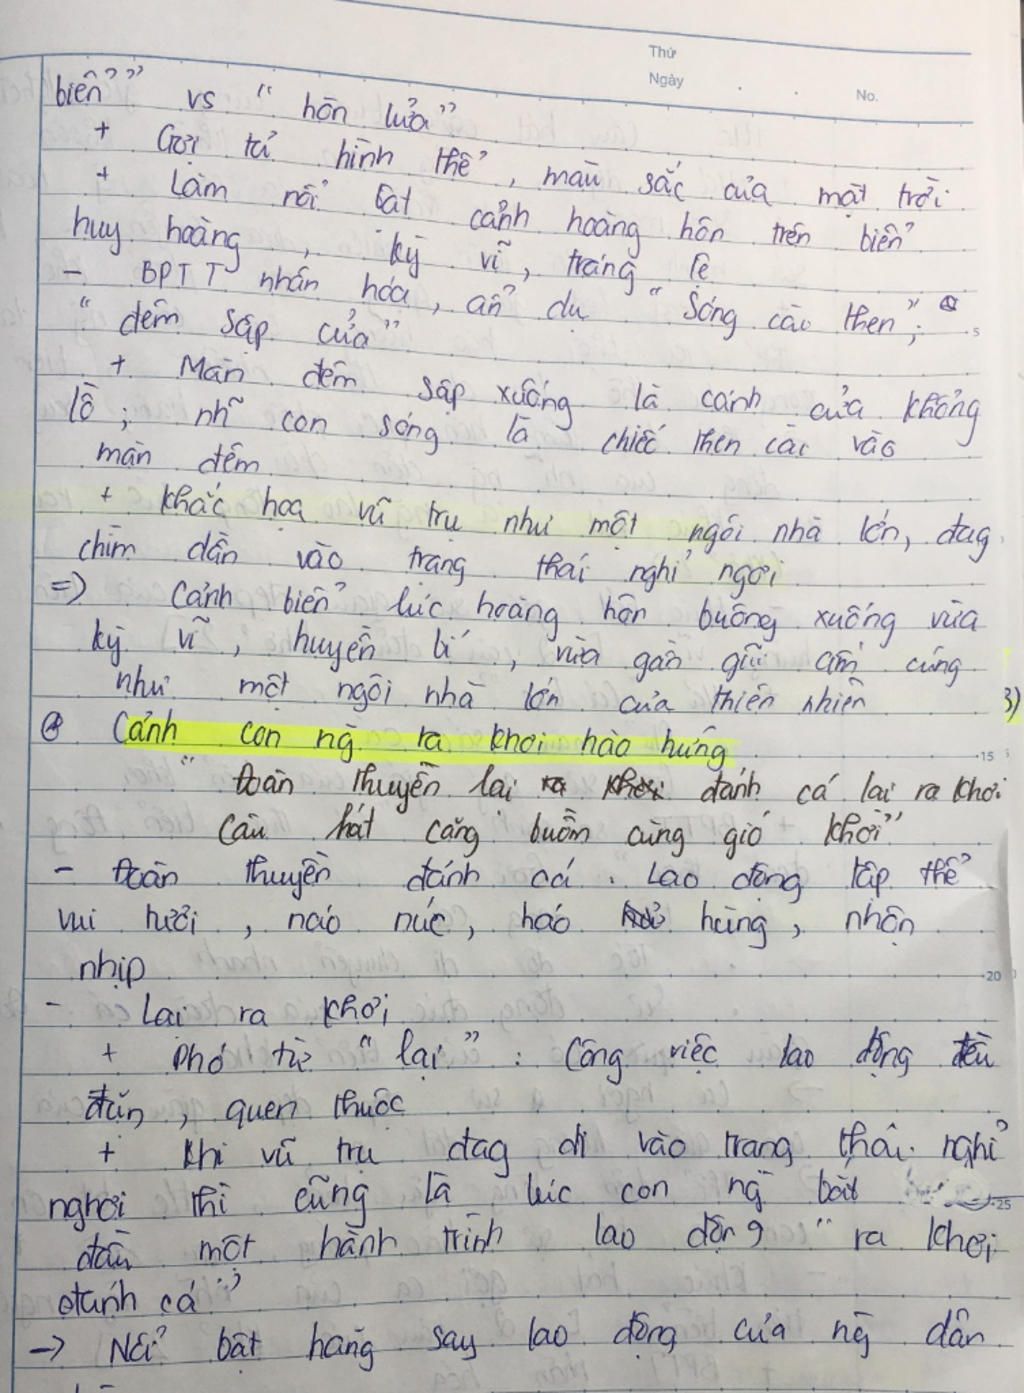 Thứ
Ngày
No.
biển”” vs “ hòn lửa”
+ Gợi tả hình thể, màu sắc của mặt trời
+ Làm nổi bật cảnh hoàng hôn trên biển
huy hoàng, kỳ vĩ, tráng lệ
- BPTT nhân hóa, ẩn dụ “ Sóng cài then”;
“ đêm sập cửa”
+ Màn đêm sập xuống là cánh cửa khổng
lồ; nhg con sóng là chiếc then cài vào
màn đêm
+ khắc họa vũ trụ như một ngôi nhà lớn, đag
chìm dần vào trạng thái nghỉ ngơi
=> Cảnh biển lúc hoàng hôn buông xuống vừa
kỳ vĩ, huyền bí, vừa gần gũi ấm cúng
như một ngôi nhà lớn của thiên nhiên
3)
Cảnh con ng ra khơi hào hứng
15
“ Đoàn thuyền lại đánh cá lại ra khơi
Câu hát căng buồm cùng gió khơi”
- Đoàn thuyền đánh cá. Lao động tập thể
vui tươi, náo nức, hào hùng, nhộn
nhịp
20
- Lại ra khơi
+ Phó từ “ lại” : Công việc lao động đều
đặn, quen thuộc
+ Khi vũ trụ đag đi vào trạng thái nghỉ
nghơi thì cũng là lúc con ng bắt
25
đầu một hành trình lao động “ ra khơi
đánh cá”
-> Nổi bật hăng say lao động của ng dân